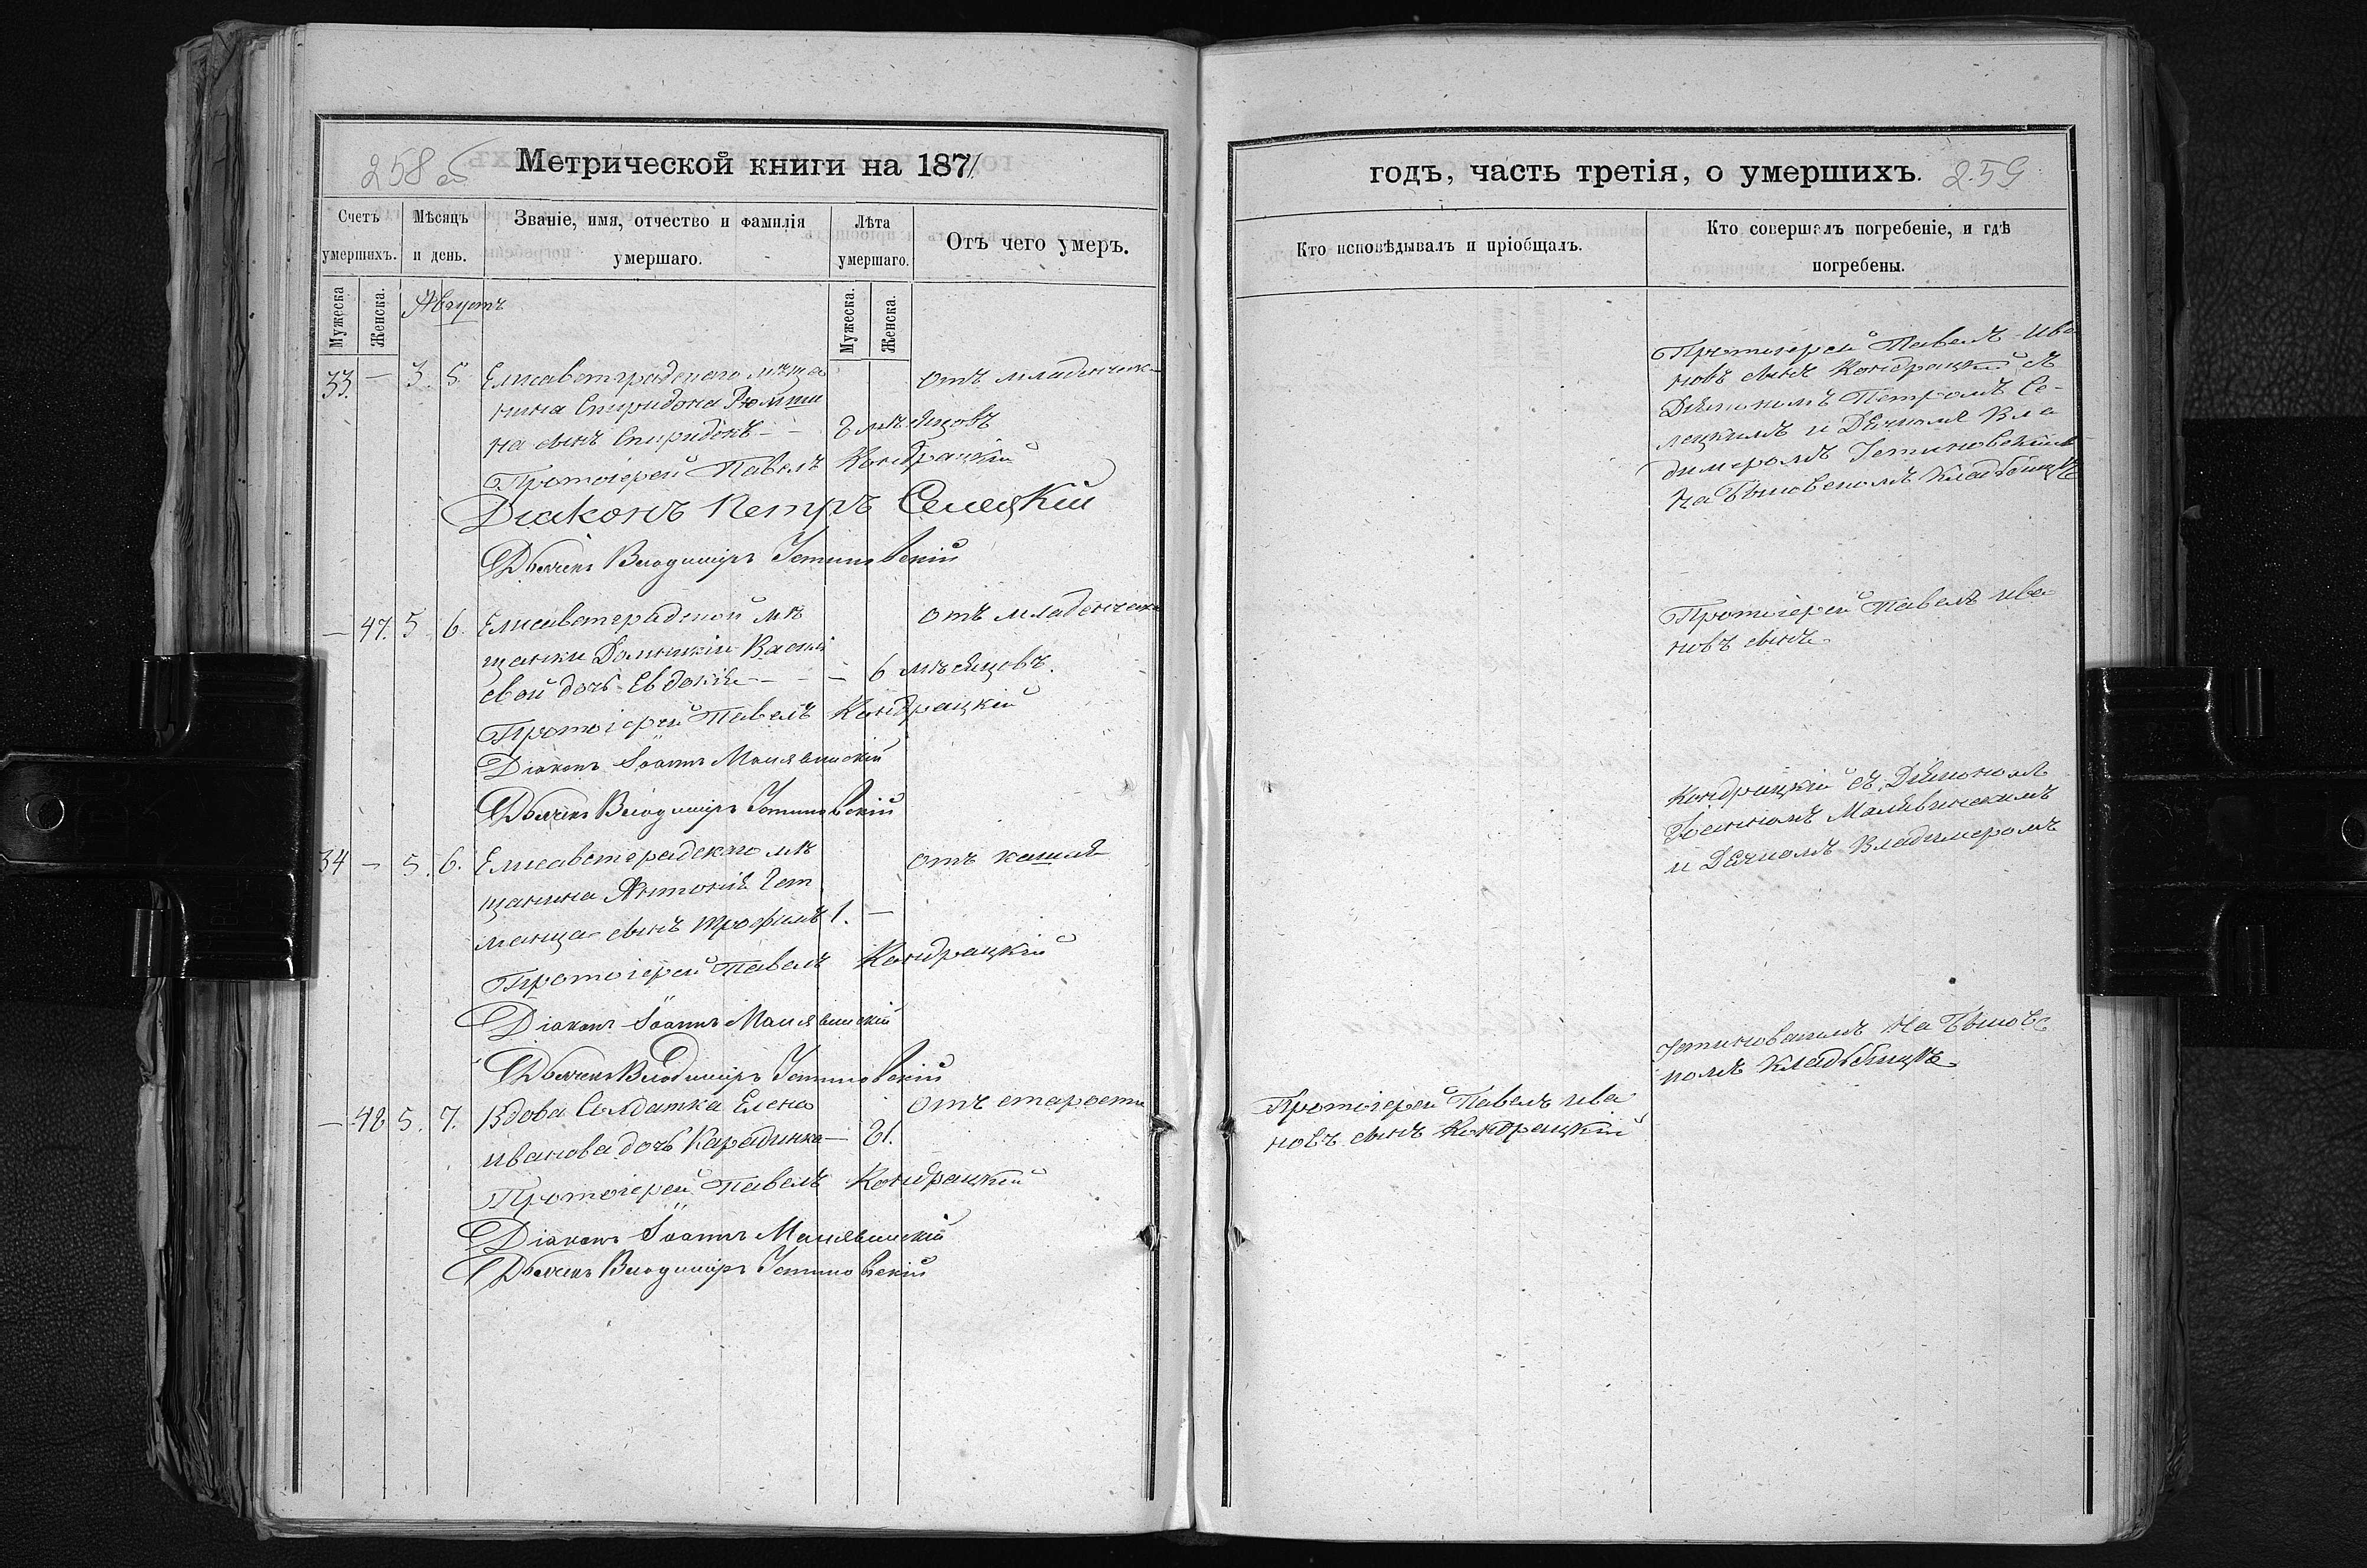 258 об
Метрической книги на 1871
Счетъ умершихъ.
Мѣсяцъ и день.
Званіе, имя, отчество и фамилія умершаго.
Лѣта умершаго.
Отъ чего умеръ.
Мужеска
Женска.
Августъ
Мужеска.
Женска.
33. — 3. 5. Елисаветградскаго мѣща отъ младенческ
нина Спиридона
на сынъ Спиридонъ — мѣсяцовъ
Протоіерей Павелъ Кондрацкій
Діаконъ Петръ Селецкій
Дьячекъ Владиміръ Устиновскій
— 47. 5. 6. Елисаветградской мѣ отъ младенческа
щанки Домникіи Василі
евой дочь Евдокія — — 6 мѣсяцовъ.
Протоіерей Павелъ Кондрацкій
Діаконъ Іоаннъ Малявинскій
Дьячекъ Владиміръ Устиновскій
34 — 5. 6. Елисаветградскаго мѣ отъ кашля
щанина Антонія Гет
манца сынъ Трофимъ 1. —
Протоіерей Павелъ Кондрацкій
Діаконъ Іоаннъ Малявинскій
Дьячекъ Владиміръ Устиновскій
— 48 5. 7. Вдова Солдатка Елена отъ старости
Иванова дочь — 81.
Протоіерей Павелъ Кондрацкій
Діаконъ Іоаннъ Малявинскій
Дьячекъ Владиміръ Устиновскій
годъ, часть третія, о умершихъ. 259
Кто исповѣдывалъ и пріобщалъ.
Кто совершалъ погребеніе, и гдѣ погребены.
Протоіерей Павелъ Ива
новъ сынъ Кондрацкій съ
Діякономъ Петромъ Се-
лецкимъ и Дячкомъ Вла
димеромъ Устиновскимъ
на Быковскомъ кладбищѣ
Протоіерей Павелъ Ива
новъ сынъ
Кондрацкій съ Діякономъ
Іоанномъ Малявинскимъ
и Дячкомъ Владимеромъ
Устиновскимъ на Быковс
комъ кладбищѣ
Протоіерей Павелъ Ива
новъ сынъ Кондрацкій